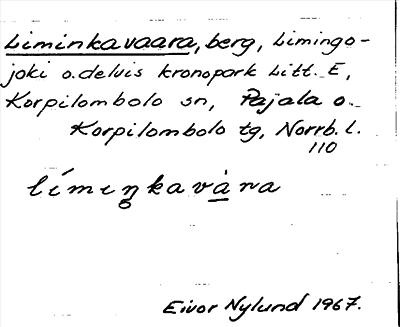 Liminkavaara, berg, Limingo-
joki o. delvis kronopark Litt. E,
Korpilombolo sn, Pajala o.
Korpilombolo tg, Norrb. l.
110
límiŋkavàra
Eivor Nylund 1967.